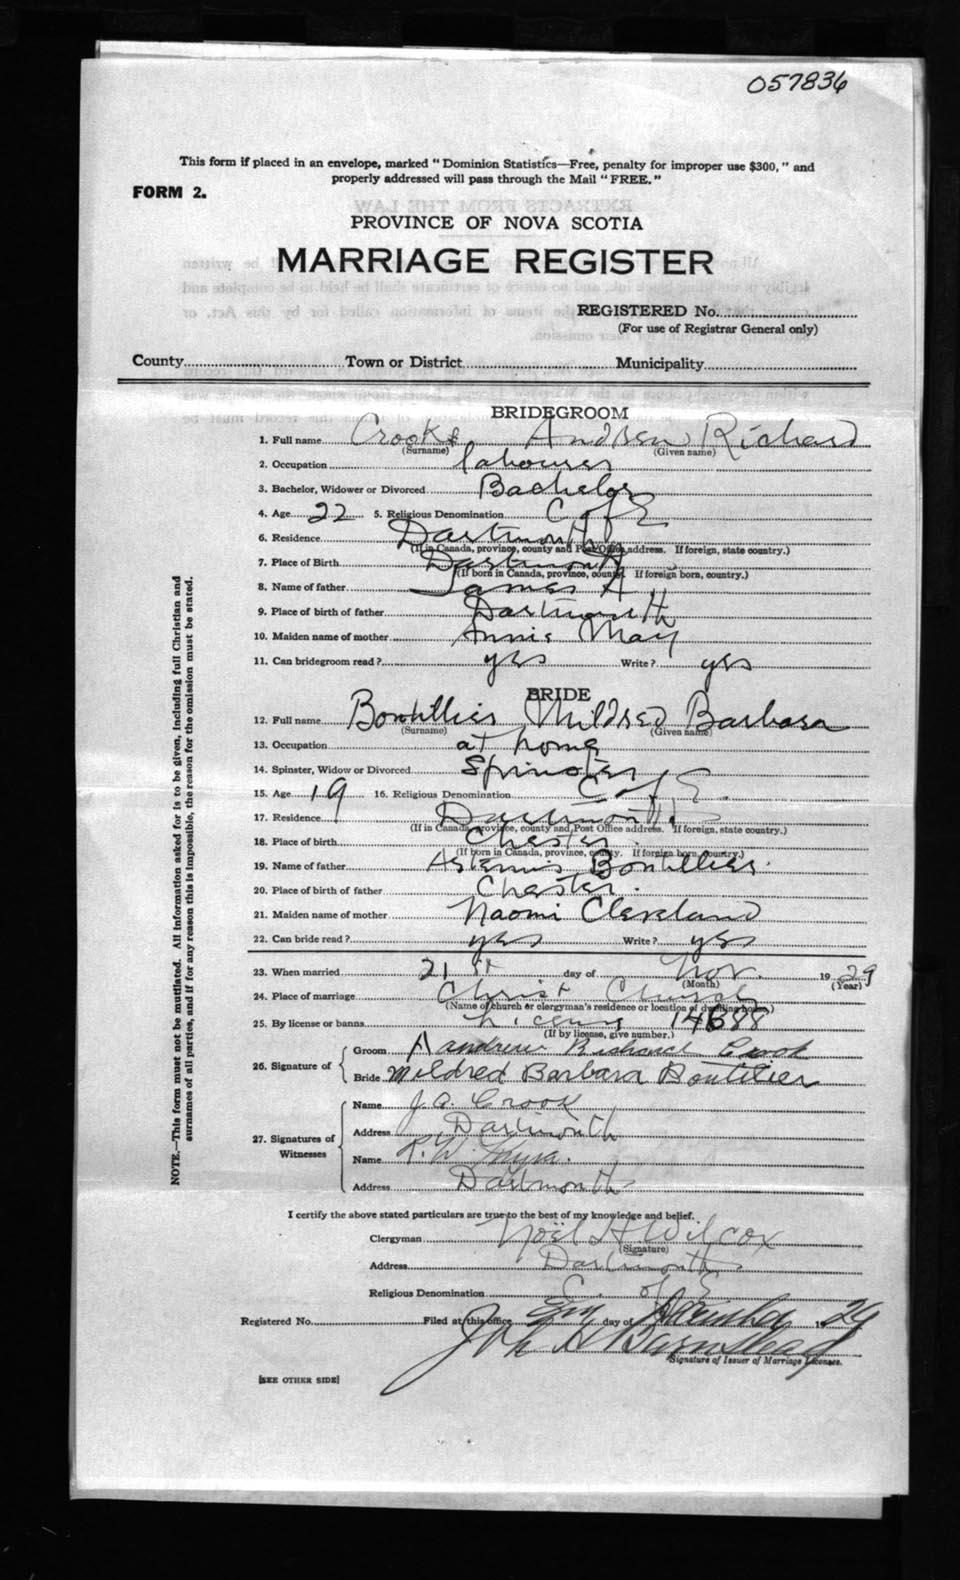 057836
This form if placed in an envelope, marked "Dominion Statistics—Free, penalty for improper use $300," and
properly addressed will pass through the Mail "FREE."
FORM 2.
PROVINCE OF NOVA SCOTIA
MARRIAGE REGISTER
REGISTERED No.
(For use of Registrar General only)
County Town or District Municipality
BRIDEGROOM
1. Full name Crook Andrew Richard
(Surname) (Given name)
2. Occupation labourer
3. Bachelor, Widower or Divorced Bachelor
4. Age 22 5. Religious Denomination C of E
6. Residence Dartmouth
(If in Canada, province, county and Post Office address. If foreign, state country.)
7. Place of Birth Dartmouth
(If born in Canada, province, county. If foreign born, country.)
8. Name of father James A.
9. Place of birth of father Dartmouth
10. Maiden name of mother Annie May
11. Can bridegroom read? yes Write? yes
BRIDE
12. Full name Boutillier Mildred Barbara
(Surname) (Given name)
13. Occupation at home
14. Spinster, Widow or Divorced Spinster
15. Age 19 16. Religious Denomination C of E
17. Residence Dartmouth
(If in Canada, province, county and Post Office address. If foreign, state country.)
18. Place of birth Chester
(If born in Canada, province, county. If foreign born, country.)
19. Name of father Artemis Boutillier
20. Place of birth of father Chester.
21. Maiden name of mother Naomi Cleveland
22. Can bride read? yes Write? yes
23. When married 21st day of Nov. 1929
(Month) (Year)
24. Place of marriage Christ Church
(Name of church or clergyman's residence or location of dwelling house)
25. By license or banns License 14688
(If by license, give number.)
26. Signature of
Groom Aandrew Richard Crook
Bride Mildred Barbara Boutilier
27. Signatures of Witnesses
Name J. A. Crook
Address Dartmouth
Name R. W.
Address Dartmouth
I certify the above stated particulars are true to the best of my knowledge and belief.
Clergyman Noël H. Wilcox
(Signature)
Address Dartmouth
Religious Denomination C. of E
Registered No. Filed at this office day of 1929
Signature of Issuer of Marriage Licenses.
[SEE OTHER SIDE]
NOTE.—This form must not be mutilated. All information asked for is to be given, including full Christian and
surnames of all parties, and if for any reason this is impossible, the reason for the omission must be stated.